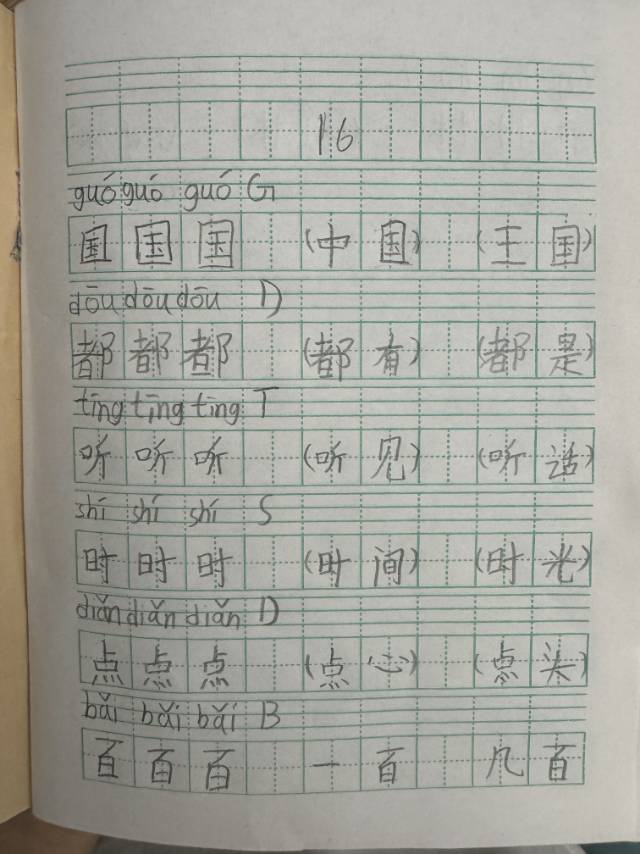 16
guó guó guó G
国 国 国 (中 国) (王 国)
dōu dōu dōu D
都 都 都 (都 有) (都 是)
tīng tīng tīng T
听 听 听 (听 见) (听 话)
shí shí shí S
时 时 时 (时 间) (时 光)
diǎn diǎn diǎn D
点 点 点 (点 心) (点 头)
bǎi bǎi bǎi B
百 百 百 一 百 几 百